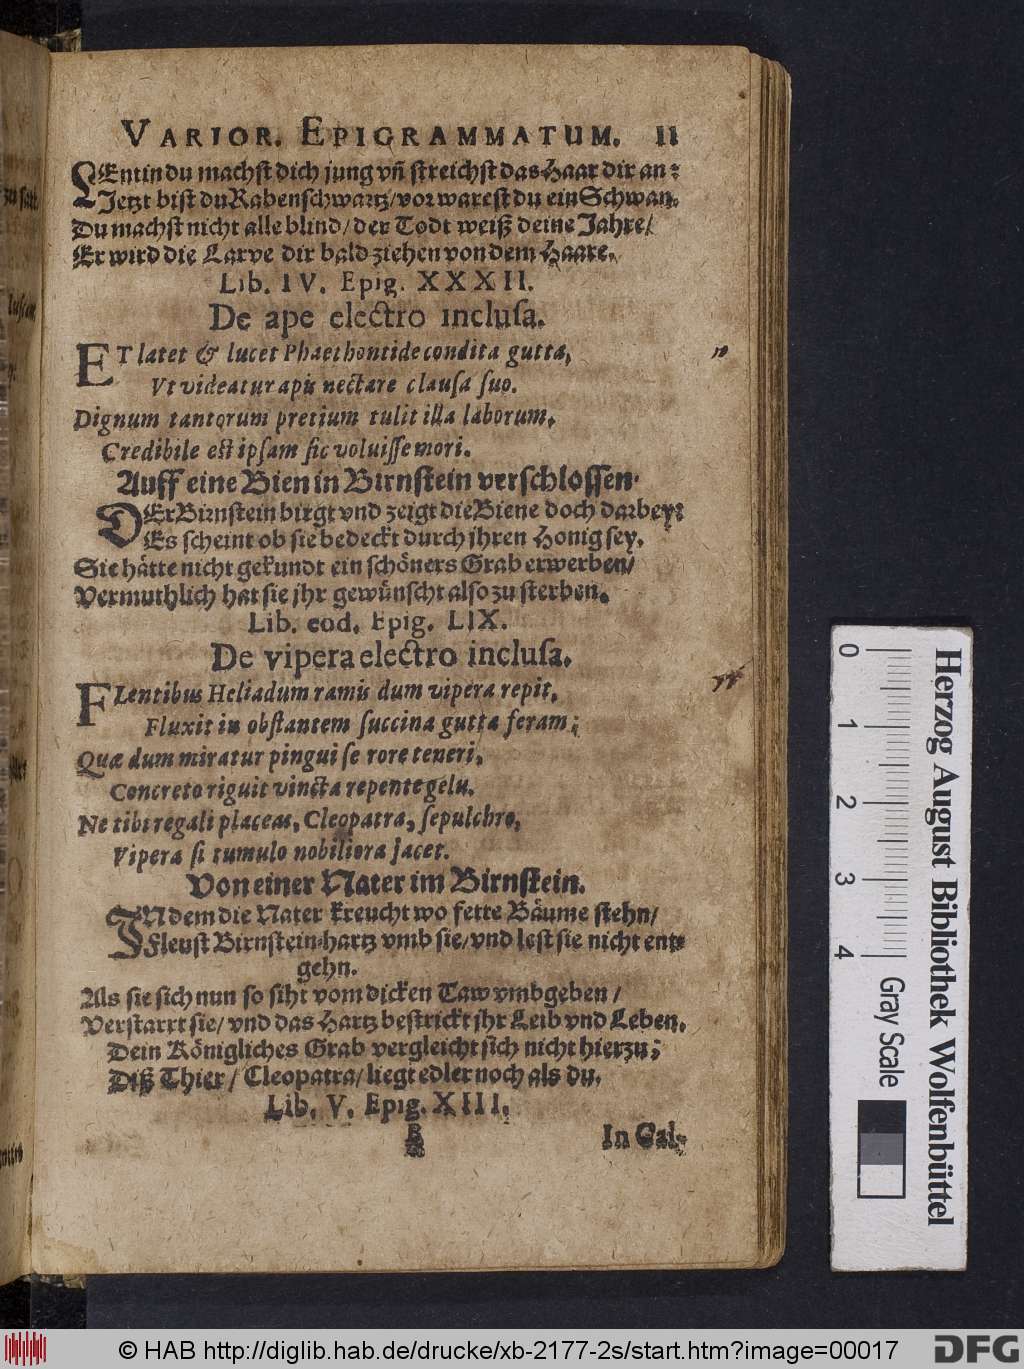 VARIOR. EPIGRAMMATUM. 11
LEntin du machst dich jung vñ streichst das Haar dir an:
Jetzt bist du Rabenschwartz/vor warest du ein Schwan.
Du machst nicht alle blind/der Todt weiß deine Jahre/
Er wird die Larve dir bald ziehen von dem Haare.
Lib. IV. Epig. XXXII.
De ape electro inclusa.
ET latet & lucet Phaethontide condita gutta,
Vt videatur apis nectare clausa suo.
Dignum tantorum pretium tulit illa laborum,
Credibile est ipsam sic voluisse mori.
Auff eine Bien in Birnstein verschlossen.
DEr Birnstein birgt vnd zeigt die Biene doch darbey:
Es scheint ob sie bedeckt durch jhren Honig sey.
Sie hätte nicht gekundt ein schöners Grab erwerben/
Vermuthlich hat sie jhr gewünscht also zu sterben.
Lib. eod. Epig. LIX.
De vipera electro inclusa.
FLentibus Heliadum ramis dum vipera repit,
Fluxit in obstantem succina gutta feram;
Quæ dum miratur pingui se rore teneri,
Concreto riguit vincta repente gelu.
Ne tibi regali placeas, Cleopatra, sepulchro,
Vipera si tumulo nobiliora jacet.
Von einer Nater im Birnstein.
INdem die Nater kreucht wo fette Bäume stehn/
Fleust Birnstein-hartz vmb sie/vnd lest sie nicht ent-
gehn.
Als sie sich nun so siht vom dicken Taw vmbgeben/
Verstarrt sie/vnd das Hartz bestrickt jhr Leib vnd Leben.
Dein Königliches Grab vergleicht sich nicht hierzu;
Diß Thier/Cleopatra/liegt edler noch als du.
Lib. V. Epig. XIII.
B
In Gal-
0 1 2 3 4
Herzog August Bibliothek Wolfenbüttel
Gray Scale
© HAB http://diglib.hab.de/drucke/xb-2177-2s/start.htm?image=00017
DFG